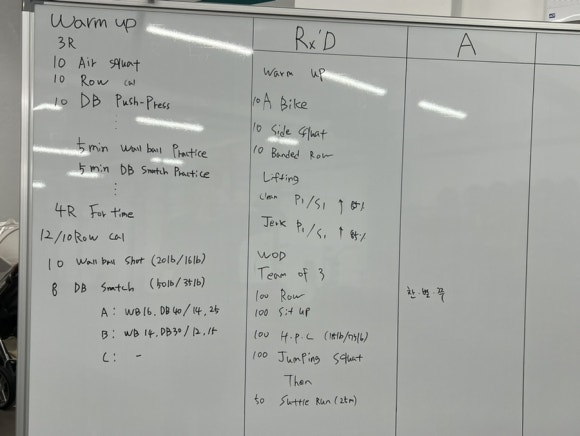 Warm up
3R
10 Air squat
10 Row cal
10 DB Push-Press
5 min Wall ball Practice
5 min DB Snatch Practice
4R For time
12/10 Row cal
10 Wall ball shot (20lb/16lb)
8 DB Snatch (50lb/35lb)
A: WB 16, DB 40/14, 25
B: WB 14, DB 30/12, 15
C: -
Rx'D
Warm up
10 A Bike
10 Side squat
10 Banded Row
Lifting
Clean P1/S1 ↑ 85%
Jerk P1/S1 ↑ 85%
WOD
Team of 3
100 Row
100 Sit up
100 H.P.C
100 Jumping squat
Then
50 Suttle Run (25m)
A
한.번.쭉